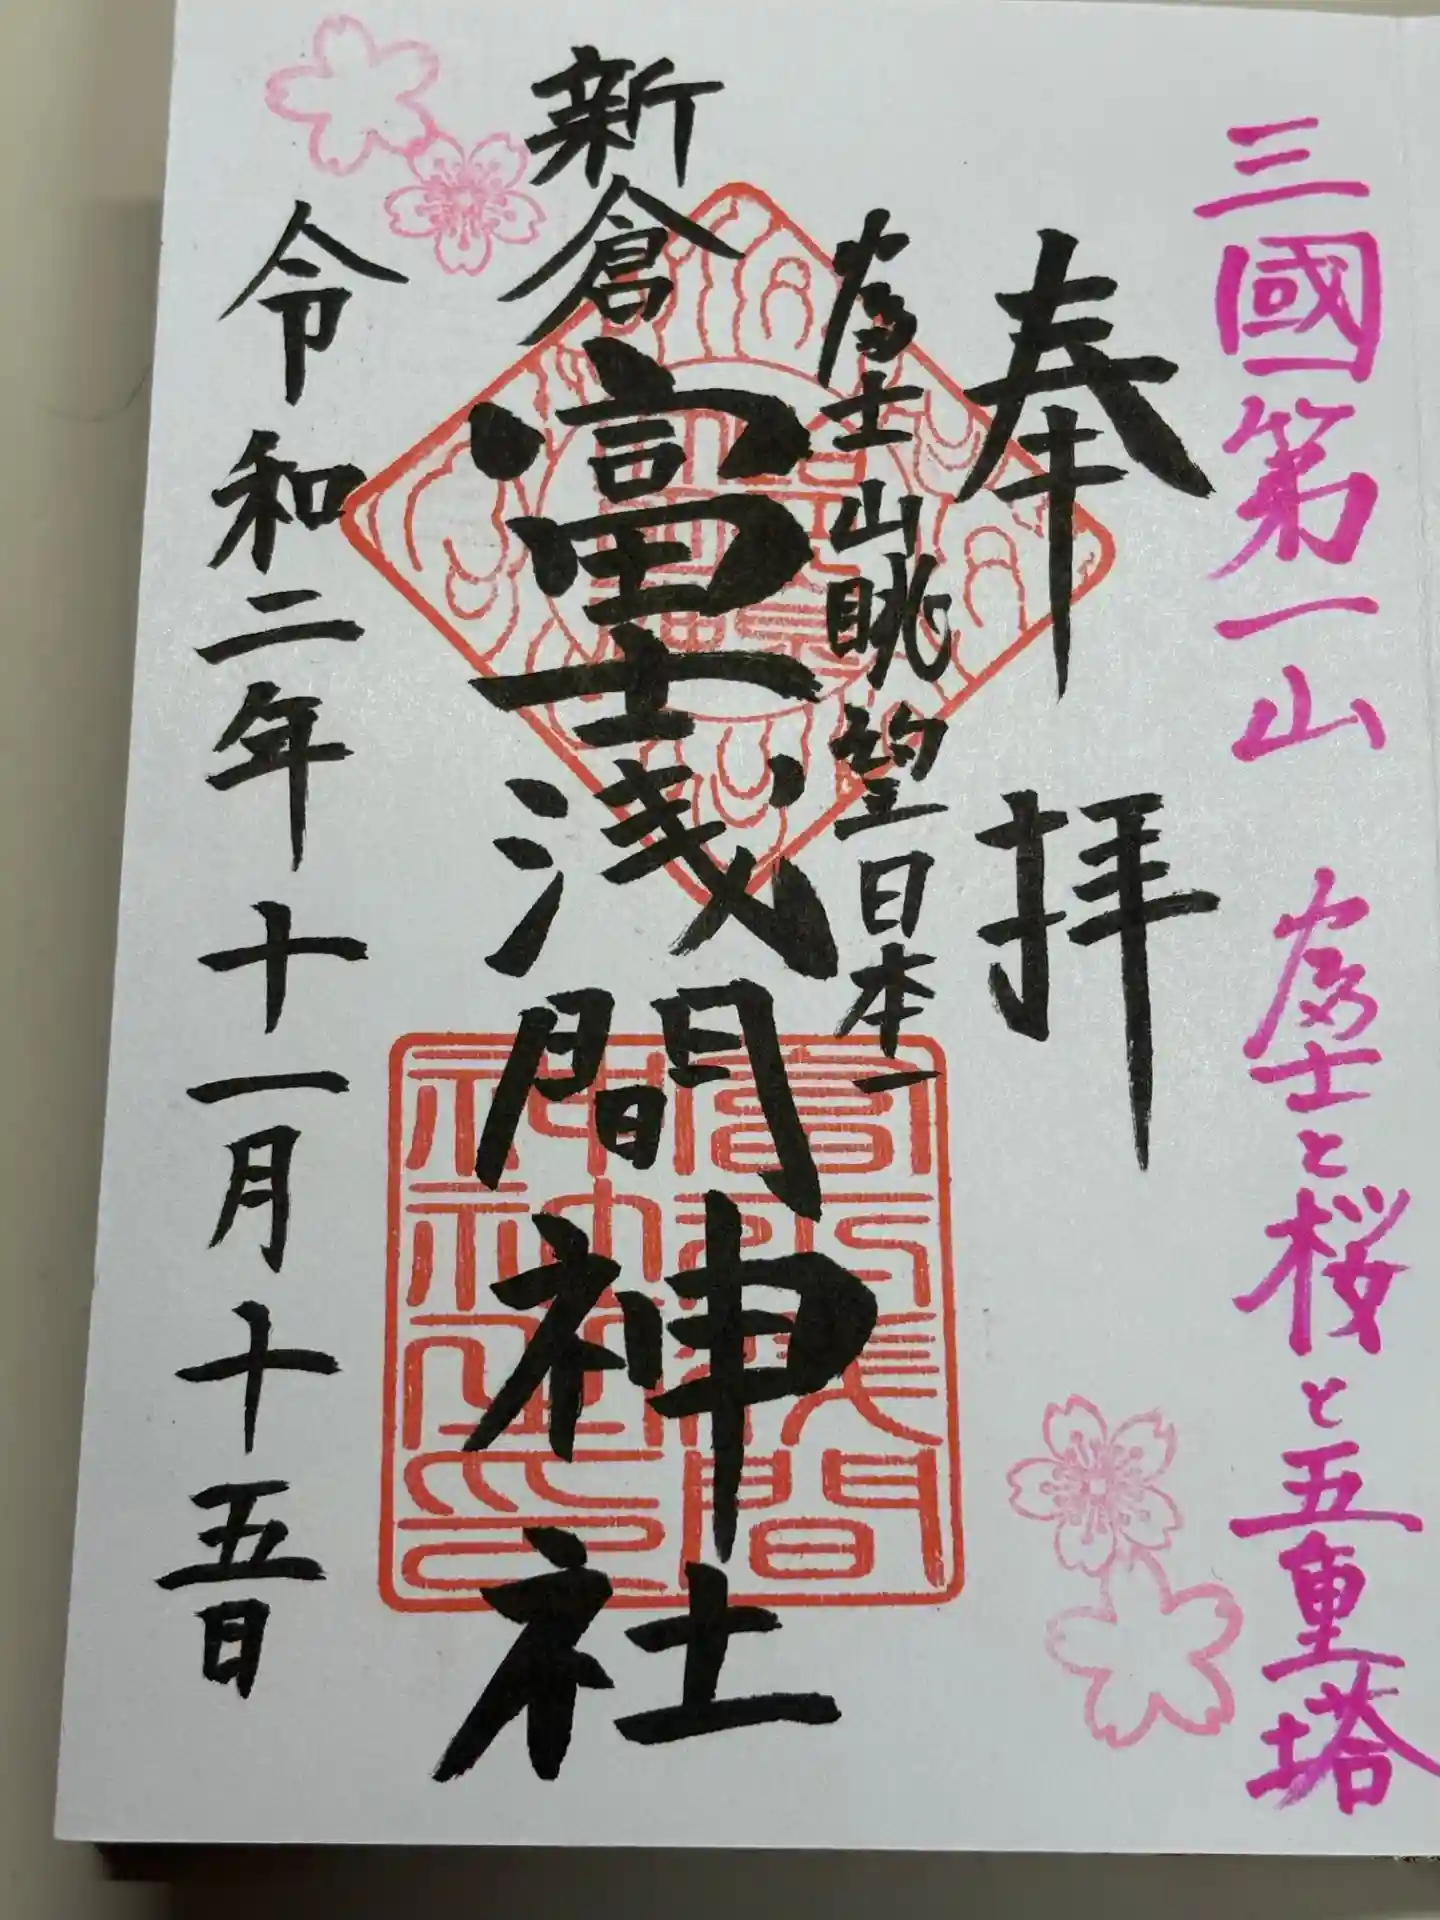 三國第一山 富士と桜と五重塔
奉拝
富士山眺望日本一
新倉富士浅間神社
令和二年十一月十五日